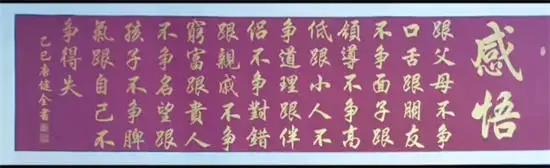 感悟
跟父母不争
口舌跟朋友
不争面子跟
领导不争高
低跟小人不
争道理跟伴
侣不争對错
跟親戚不争
窮富跟貴人
不争名望跟
孩子不争脾
氣跟自己不
争得失
乙巳唐健全書